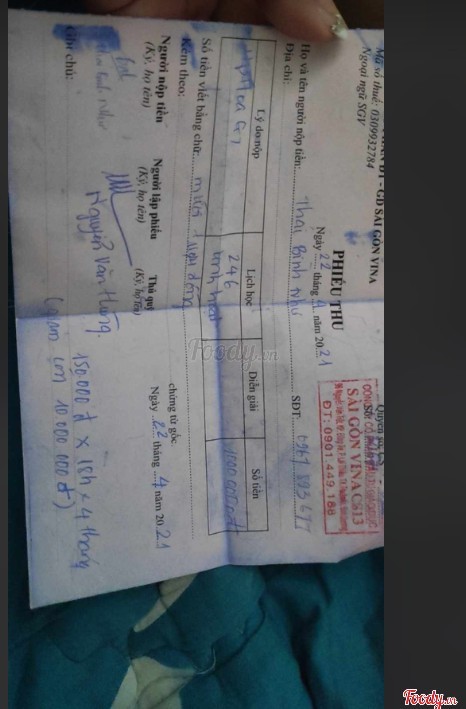 ĐT - GD SÀI GÒN VINA
Mã số thuế: 0309932784
Ngoại ngữ SGV
Quyển số
SÀI GÒN VINA CS13
ĐT: 0901.449.188
PHIẾU THU
Ngày 22 tháng 4 năm 2021
Họ và tên người nộp tiền: Thái Bình Như
SĐT:
Địa chỉ:
Lý do nộp
Lịch học
Diễn giải
Số tiền
246
linh hoạt
Số tiền viết bằng chữ: mười triệu đồng
Kèm theo:
chứng từ gốc.
Ngày 22 tháng 4 năm 2021
Người nộp tiền
(Ký, họ tên)
Người lập phiếu
(Ký, họ tên)
Thủ quỹ
(Ký, họ tên)
Nguyễn Văn Hùng.
Ghi chú:
150.000 đ x 16h x 4 tháng
(giảm còn 10 000 000 đ)
Foody.vn
Foody.vn